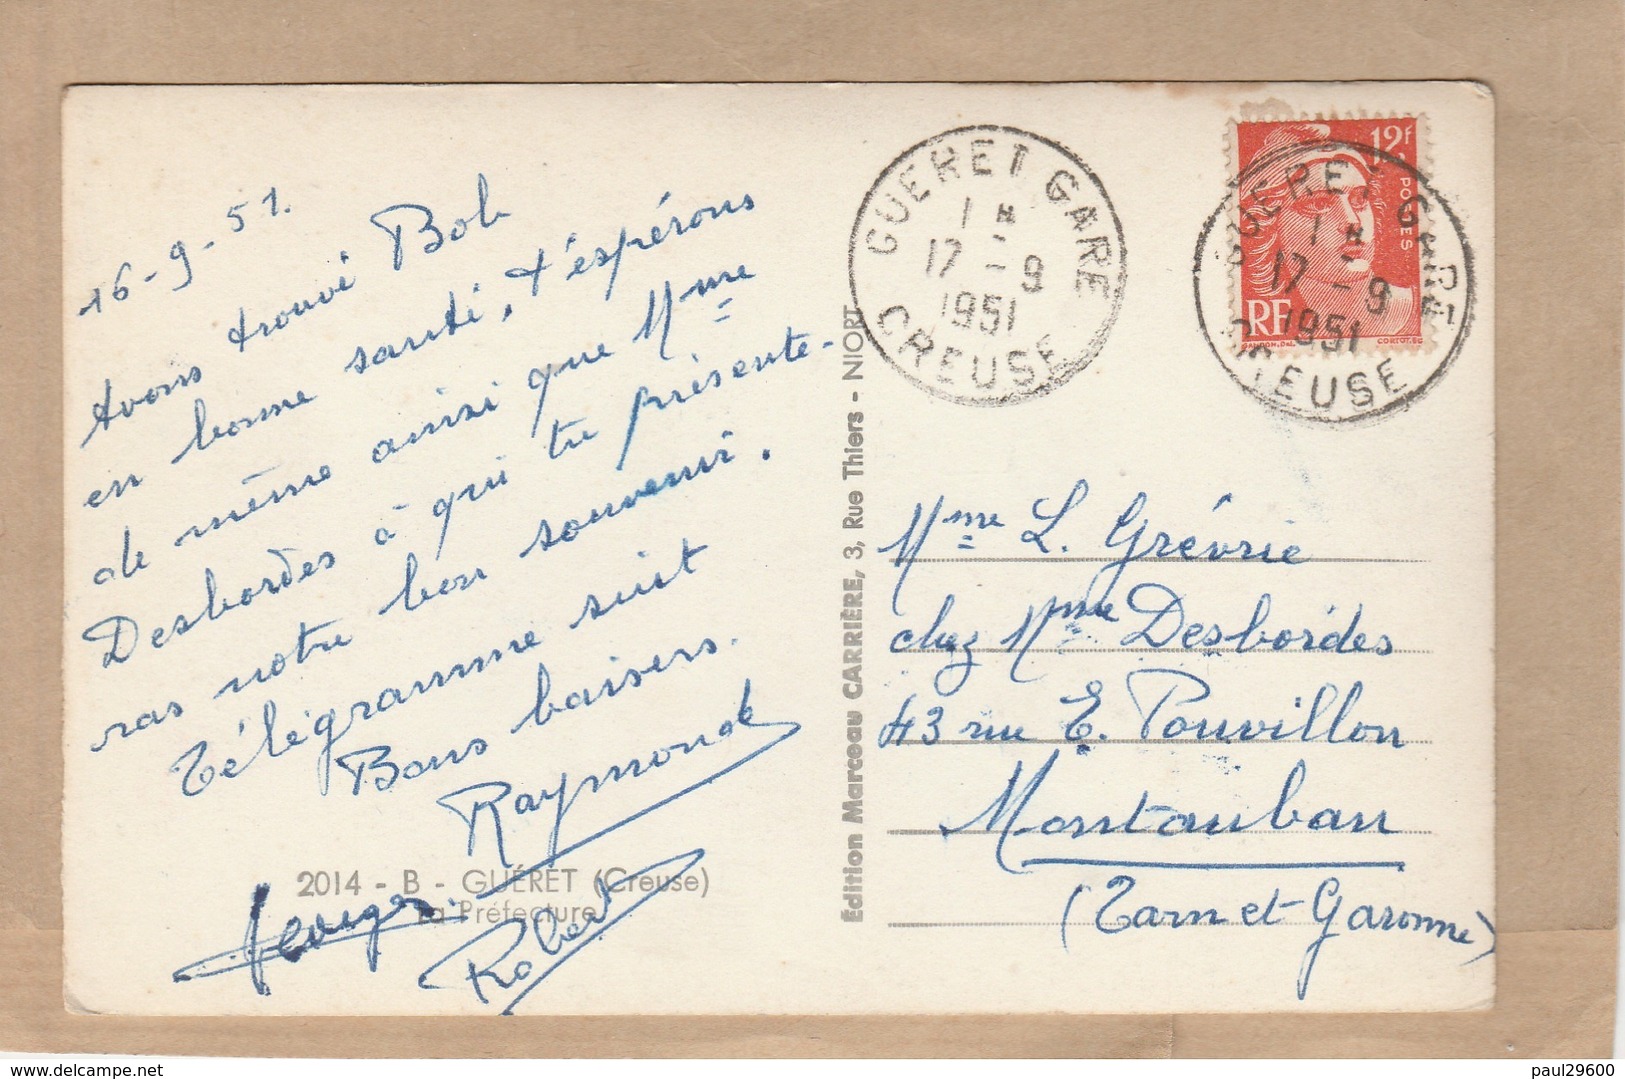 16-9-51.
Avons trouvé Bob
en bonne santé, t'espérons
de même ainsi que Mme
Desbordes à qui tu présente-
ras notre bon souvenir.
Télégramme suit
Bons baisers.
Raymonde
Georges
Robert
2014 - B - GUÉRET (Creuse)
La Préfecture
Édition Marceau CARRIÈRE, 3, Rue Thiers - NIORT
GUERET GARE
1 H
17 - 9
1951
CREUSE
12F
POSTES
RF
GANDON.DEL.
CORTOT.SC
GUERET GARE
1 H
17 - 9
1951
CREUSE
Mme L. Grévrie
chez Mme Desbordes
43 rue E. Pouvillon
Montauban
(Tarn et Garonne)
paul29600